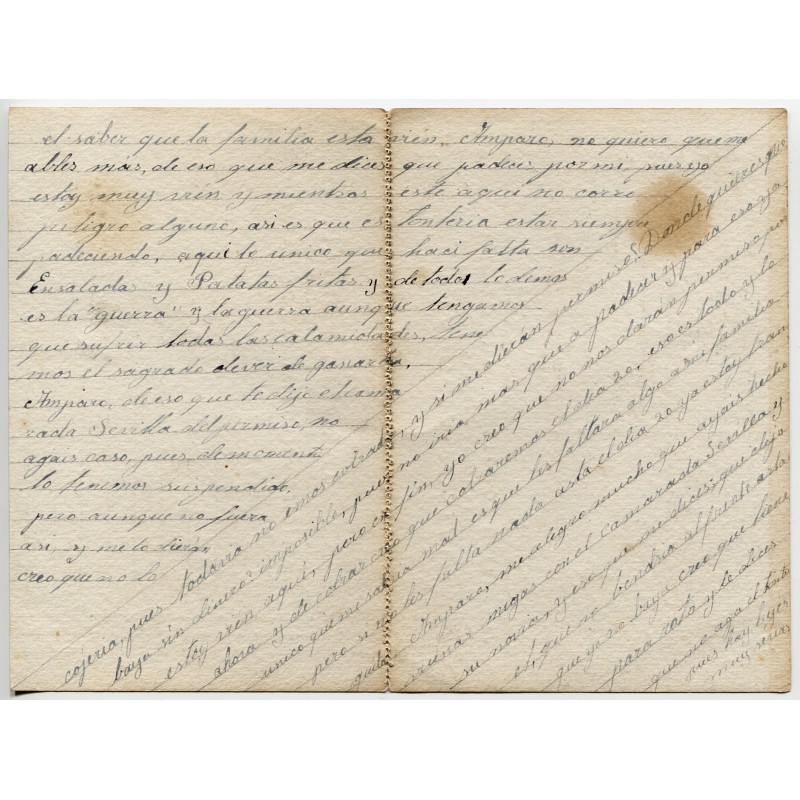 el saber que la familia esta vién. Amparo, no quiero que me
ables más, de eso que me dices que padeces por mi, pues yo
estoy muy vién y mientras este aqui no corro
peligro alguno, asi es que es tonteria estar siempre
padeciendo, aqui lo unico que haci falta son
Ensaladas y Patatas fritas y de todo lo demas
es la "guerra" y la guerra aunque tengamos
que sufrir todas las calamidades, tene
mos el sagrado dever de ganarla,
Amparo, de eso que te dijo el cama
rada Sevilla del permiso, no
agais caso, pues de momento
lo tenemos suspendido.
pero aunque no fuera
asi, y me lo dieran
creo que no lo
cojeria, pues todavia no emos cobrado, y si me dieran permiso. Donde quieres que
baya sin dinero? imposible, pues no iria mas que a padecer y para eso ya
estoy vién aqui, pero en fin, yo creo que no nos daran permiso por
ahora y de cobrar creo que cobraremos el dia 20, eso es todo y lo
unico que mi sabria mal es que les faltara algo a mi familia
pero si no les falta nada asta el dia 20 ya estoy tran
quilo. Amparo, me alegro mucho que ayais hecho
vuenas migas con el camarada Sevilla y
su novia, y eso que me dices, que dijo
el, que no bendria al frente asta
que yo se baya creo que tiene
para rato y le dices
que me aga el
pues hay
muy